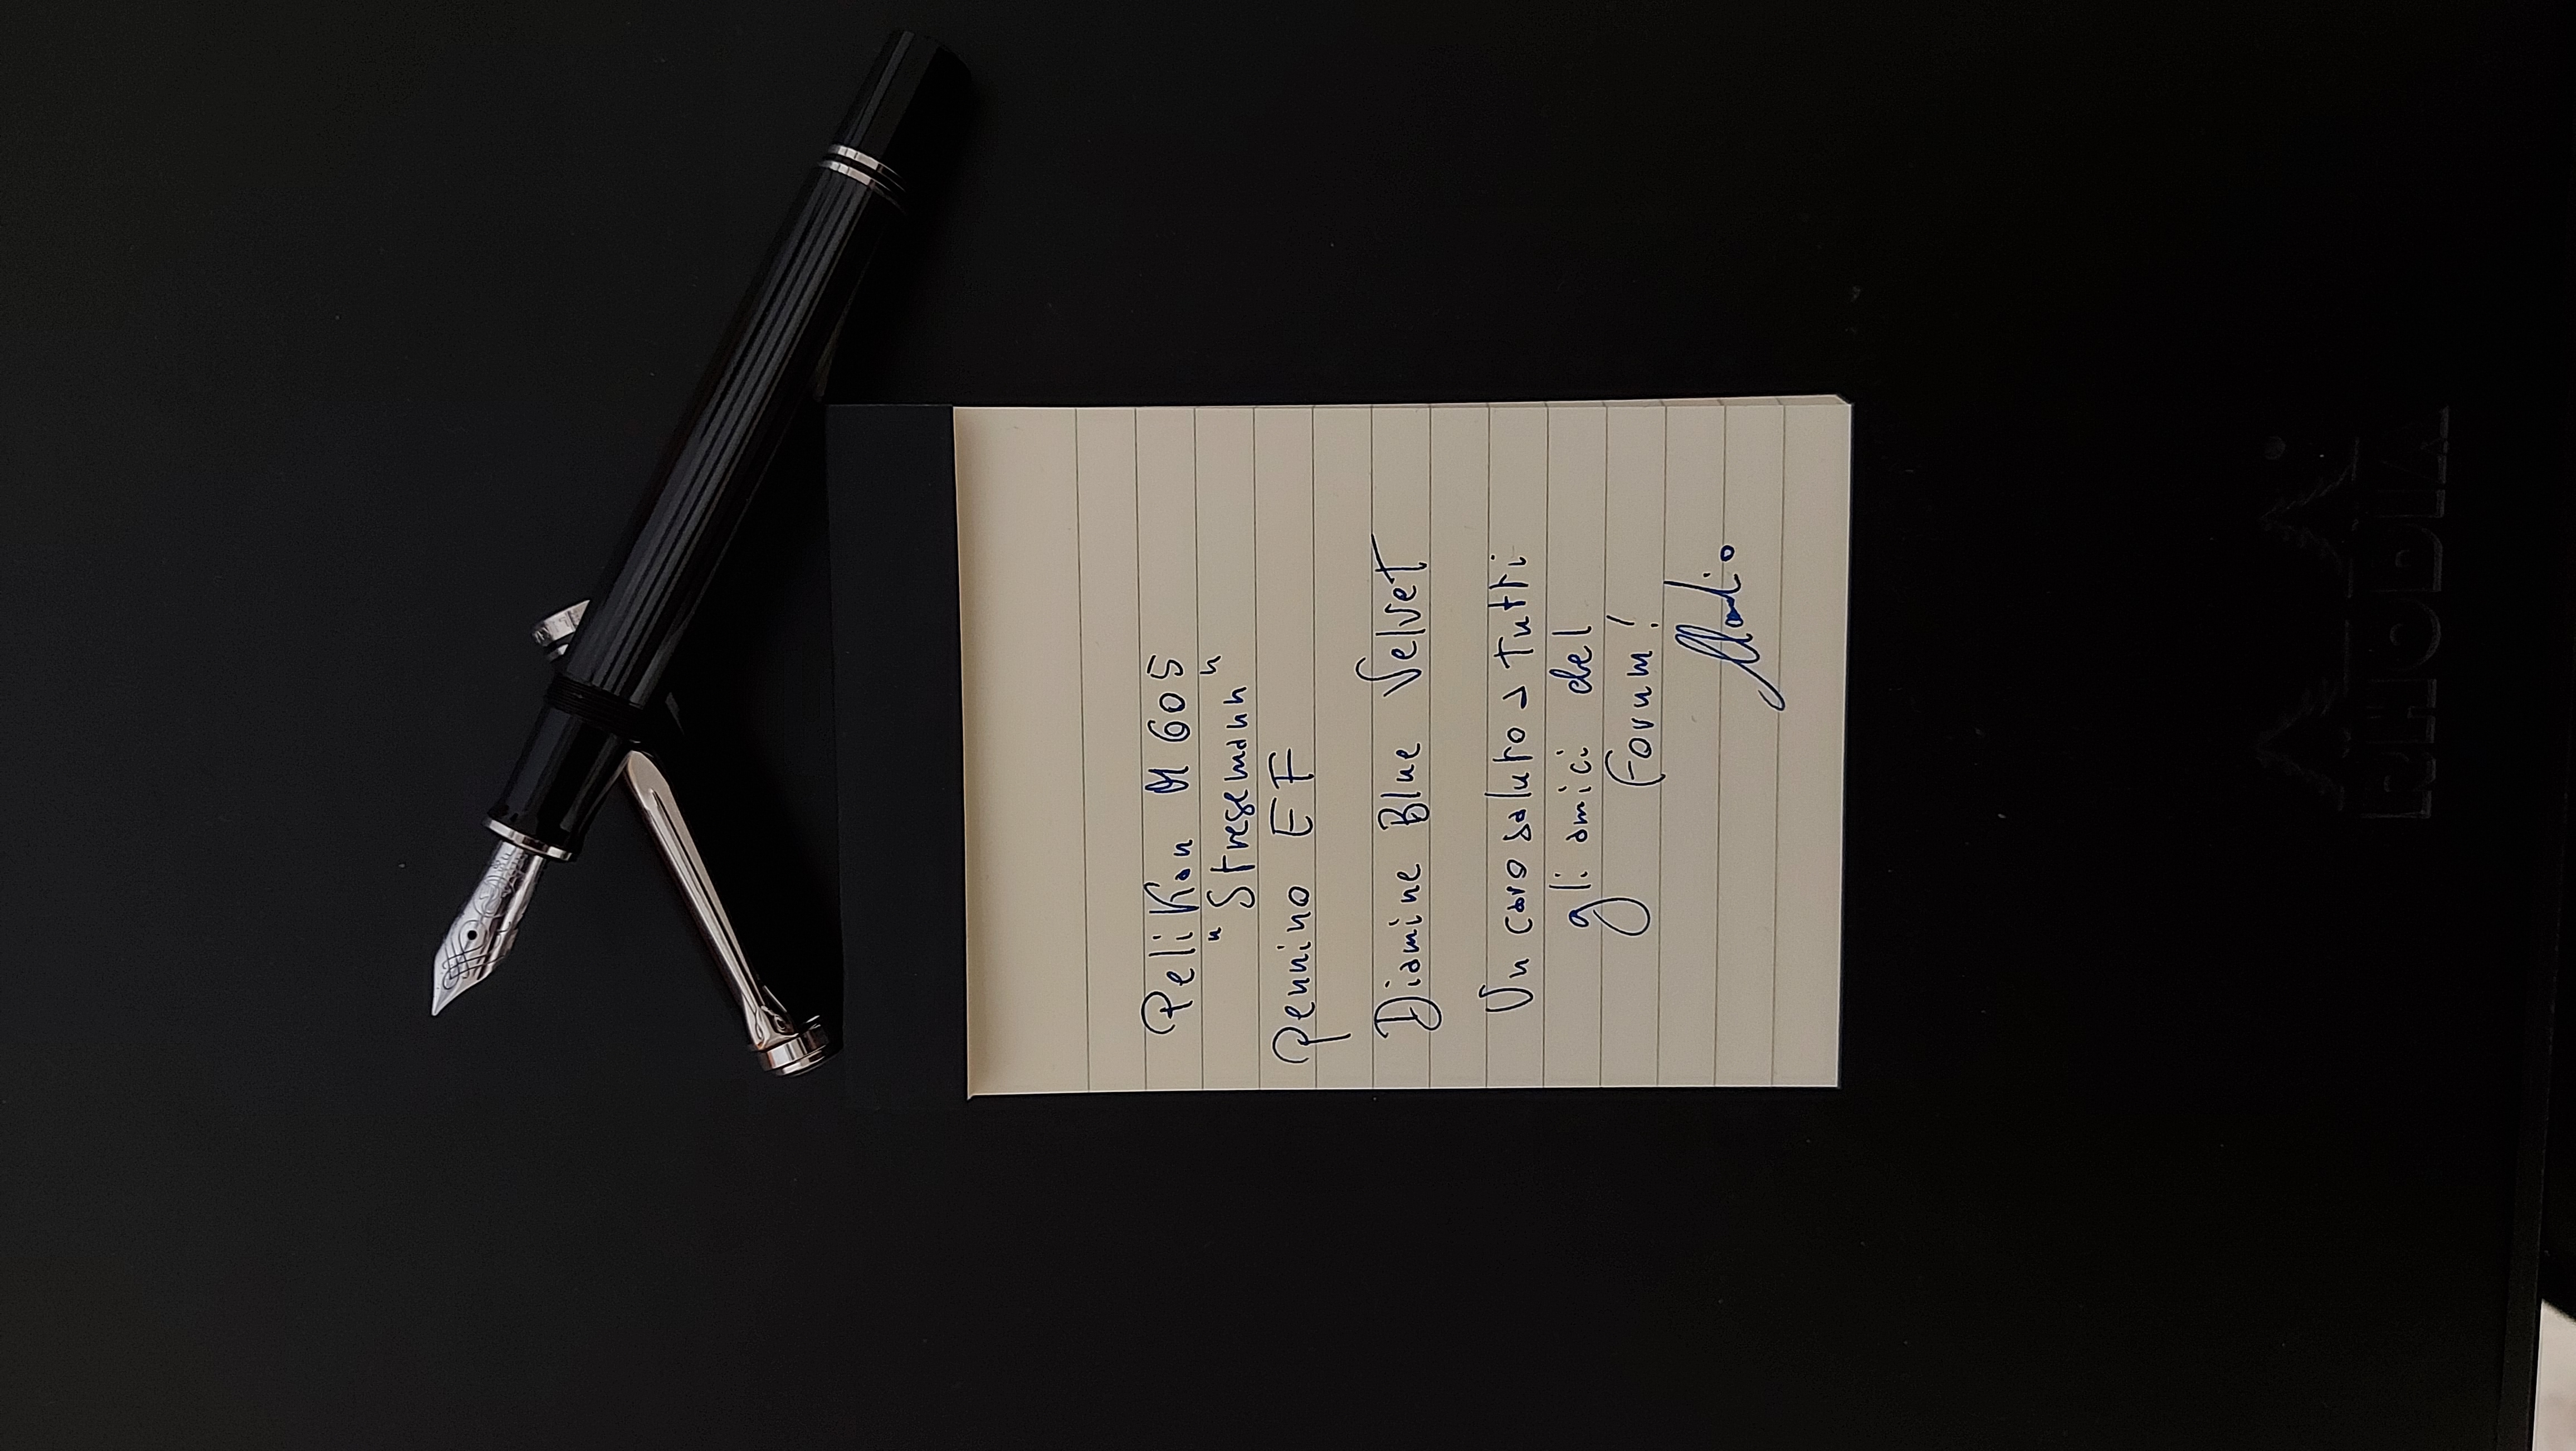 Pelikan M605
"Stresemann"
Pennino EF
Diamine Blue Velvet
Un caro saluto a tutti
gli amici del
Forum!
RHODIA